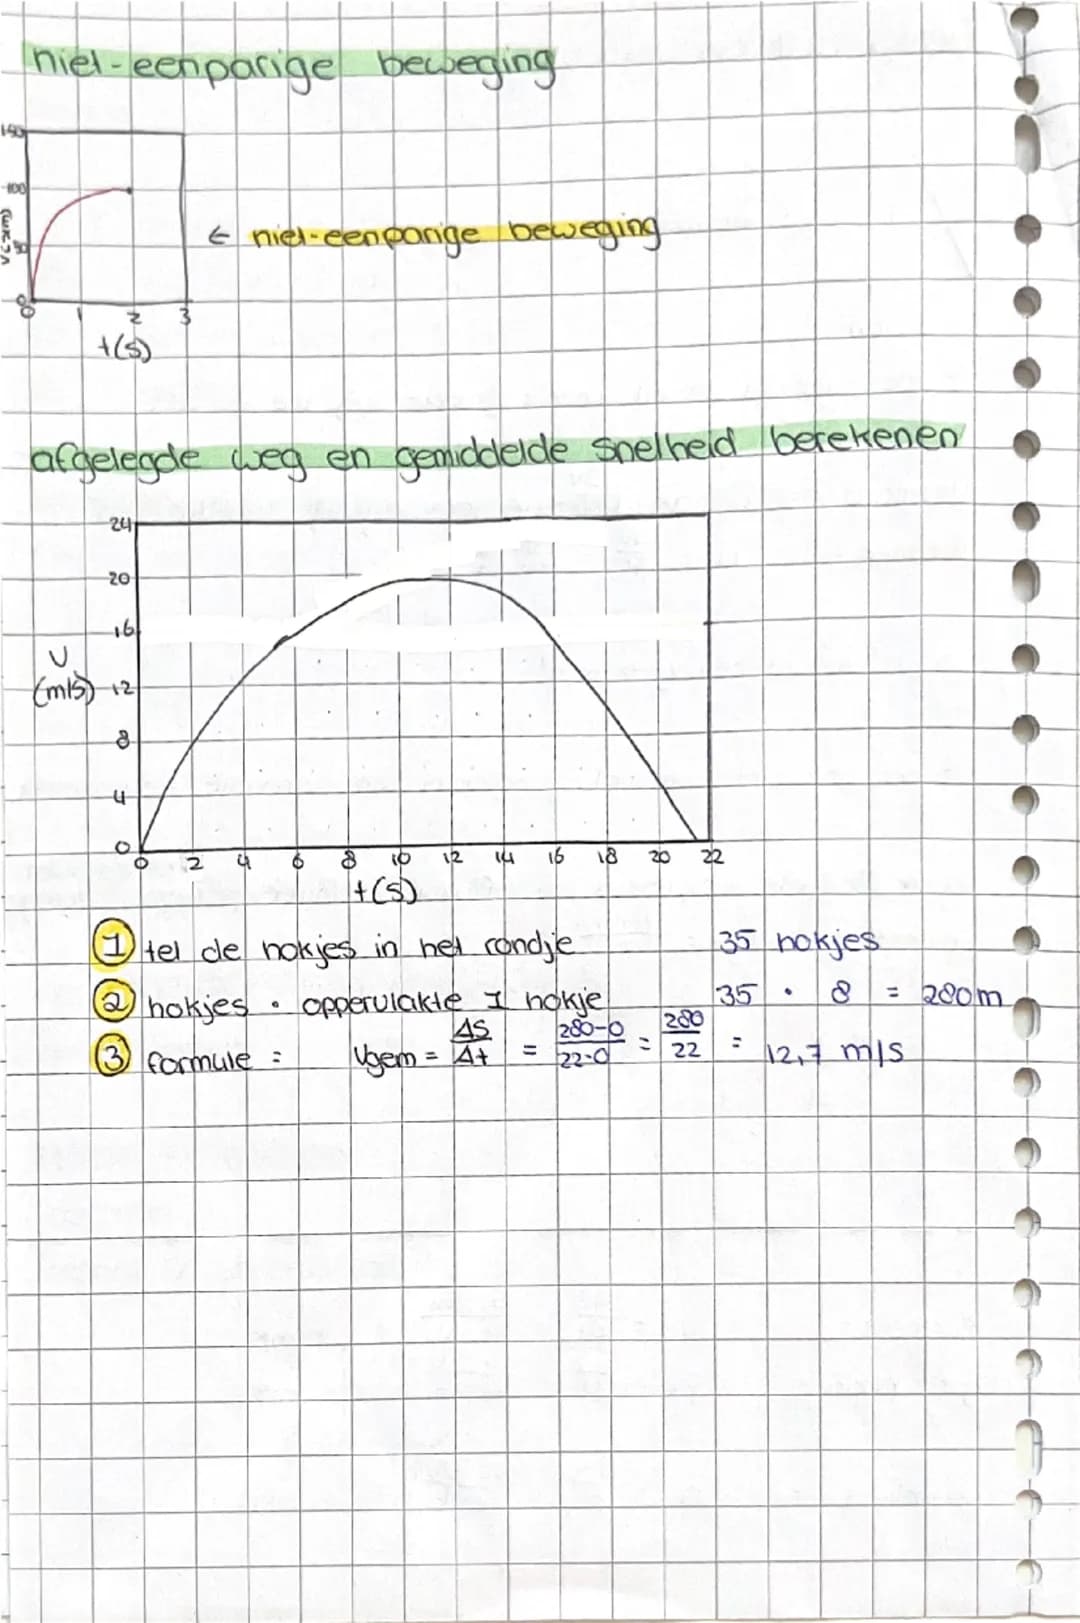 niet-eenparige beweging
150
100
50
0
v(cm/s)
0 1 2 3
t(s)
← niet-eenparige beweging
afgelegde weg en gemiddelde snelheid berekenen
24
20
16
v
(m/s) 12
8
4
0
0 2 4 6 8 10 12 14 16 18 20 22
t(s)
1 tel de hokjes in het rondje 35 hokjes
2 hokjes · oppervlakte 1 hokje 35 · 8 = 280m
3 formule : Vgem = Δs/Δt = 280-0/22-0 = 280/22 = 12,7 m/s